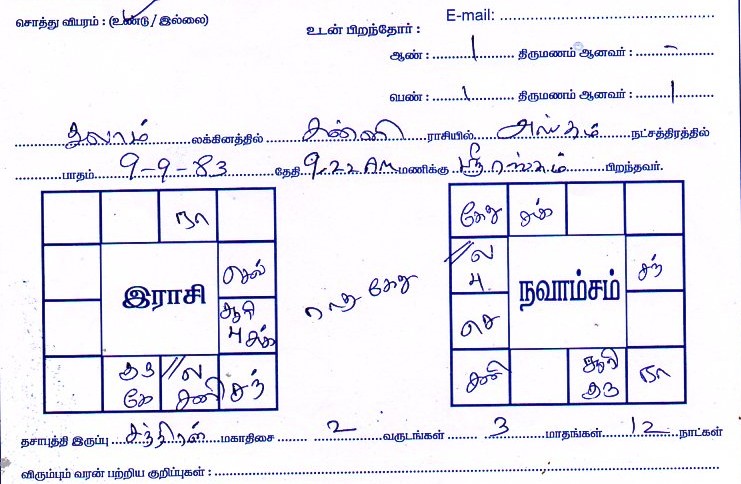 E-mail:
சொத்து விபரம் : (உண்டு / இல்லை)
உடன் பிறந்தோர் :
ஆண் : 1 திருமணம் ஆனவர் : -
பெண் : 1 திருமணம் ஆனவர் : 1
துலாம் லக்கினத்தில் கன்னி ராசியில் அஸ்தம் நட்சத்திரத்தில்
பாதம் 9-9-83 தேதி 9.22 AM மணிக்கு ஸ்ரீரங்கம் பிறந்தவர்.
ரா
செவ்
இராசி
ஆதி
4 சுக்
குரு கே
//ல சனி
சந்
ராகு கேது
கேது
சுக்
//ல
4
சந்
நவாம்சம்
செ
சனி
ஆதி குரு
ரா
தசாபுத்தி இருப்பு சந்திரன் மகாதிசை 2 வருடங்கள் 3 மாதங்கள் 12 நாட்கள்
விரும்பும் வரன் பற்றிய குறிப்புகள் :